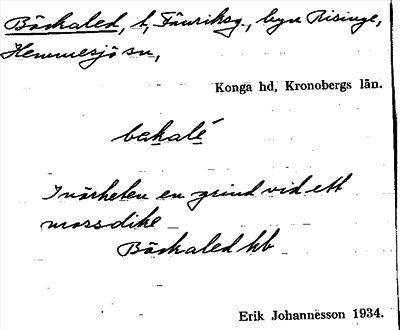 Bäckaled, l, Fänriksg., byn Risinge,
Hemmesjö sn,
Konga hd, Kronobergs län.
bakalé
I närheten en grind vid ett
mossdike
Bäckaled hb
Erik Johannesson 1934.